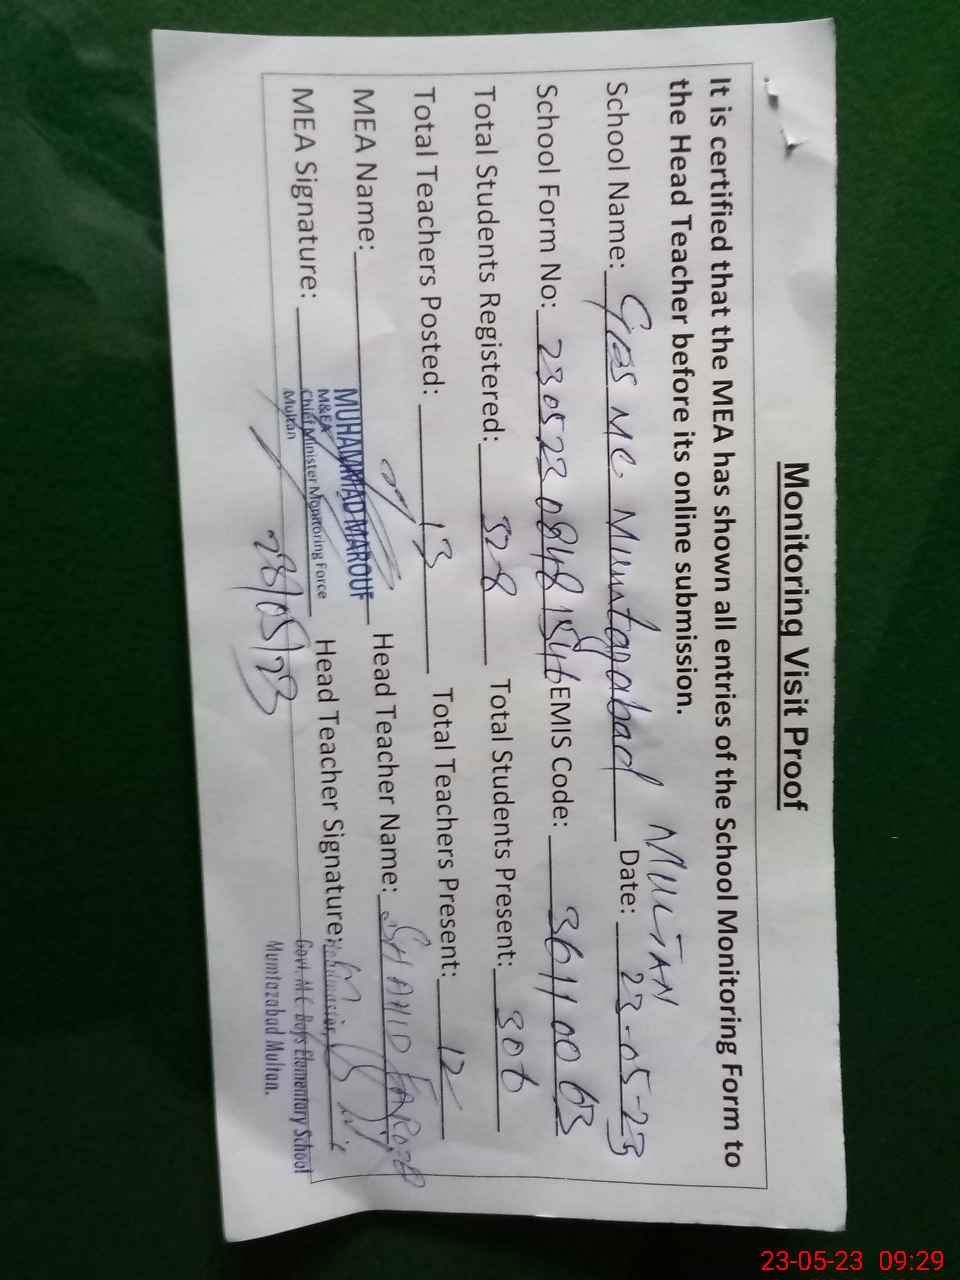 Monitoring Visit Proof
It is certified that the MEA has shown all entries of the School Monitoring Form to
the Head Teacher before its online submission.
School Name: GES MC Mumtazabad MULTAN Date: 23-05-23
School Form No: 23052308481846 EMIS Code: 36110063
Total Students Registered: 328 Total Students Present: 306
Total Teachers Posted: 13 Total Teachers Present: 12
MEA Name: MUHAMMAD MAROUF Head Teacher Name: SHAHID FAROOQ
M&EA
Chief Minister Monitoring Force
Multan
MEA Signature: Head Teacher Signature:
Govt. M.C Boys Elementary School
Mumtazabad Multan.
23-05-23 09:29